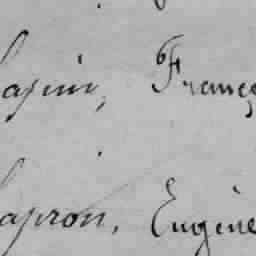 Lapin, Franç
Capron, Eugène